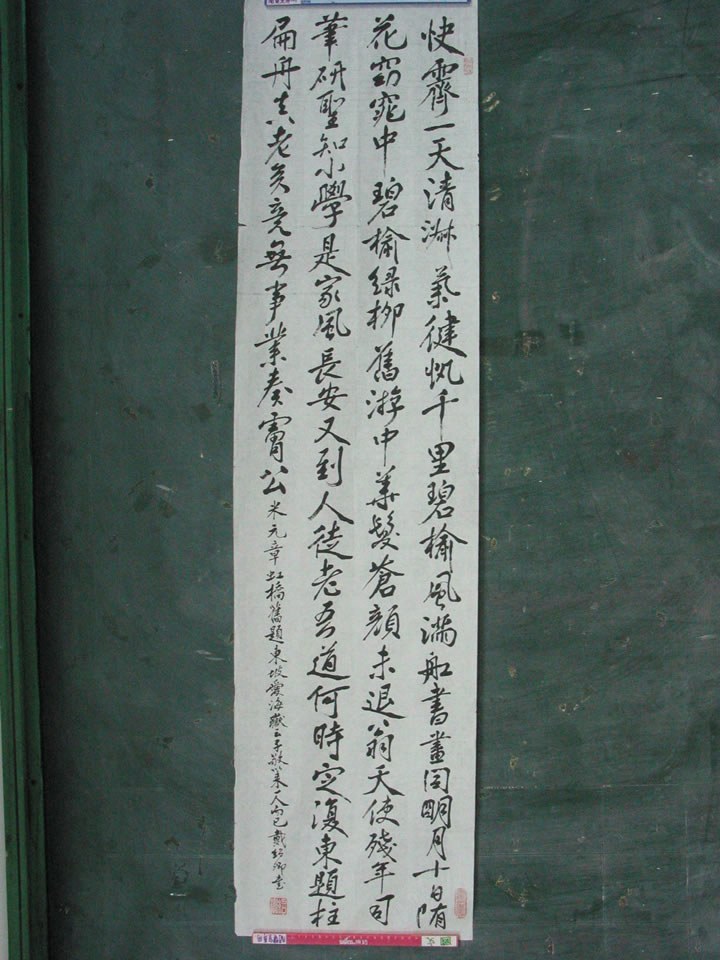 快霽一天清淑氣健帆千里碧榆風滿船書畫同明月十日隋
花窈窕中碧榆綠柳舊游中華髮蒼顏未退翁天使殘年司
筆研聖知小學是家風長安又到人徒老吾道何時定復東題柱
扁舟真老矣竟無事業奏膚公米元章虹橋舊題東坡愛海嶽云子敬以來一人而已戴卿書